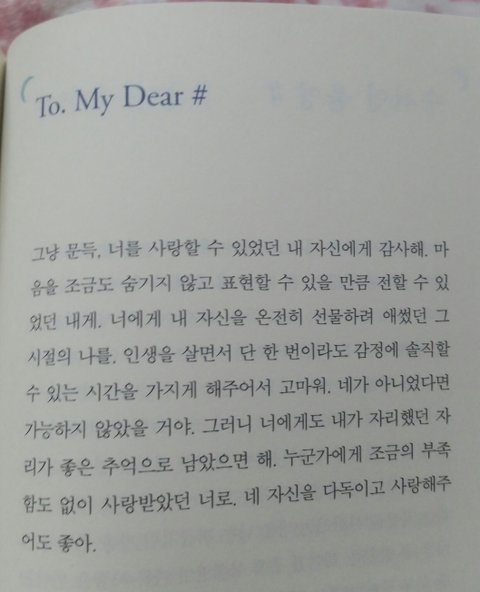 To. My Dear #
그냥 문득, 너를 사랑할 수 있었던 내 자신에게 감사해. 마
음을 조금도 숨기지 않고 표현할 수 있을 만큼 전할 수 있
었던 내게. 너에게 내 자신을 온전히 선물하려 애썼던 그
시절의 나를. 인생을 살면서 단 한 번이라도 감정에 솔직할
수 있는 시간을 가지게 해주어서 고마워. 네가 아니었다면
가능하지 않았을 거야. 그러니 너에게도 내가 자리했던 자
리가 좋은 추억으로 남았으면 해. 누군가에게 조금의 부족
함도 없이 사랑받았던 너로. 네 자신을 다독이고 사랑해주
어도 좋아.